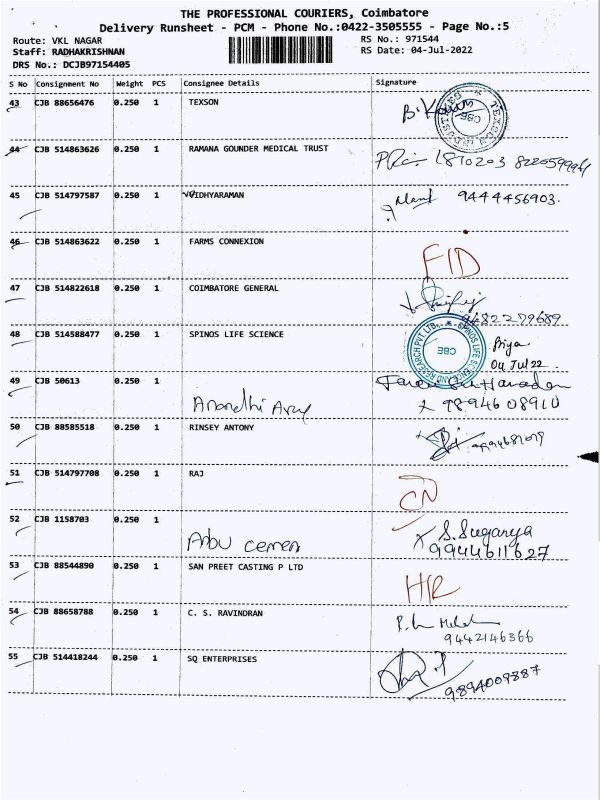 THE PROFESSIONAL COURIERS, Coimbatore
Delivery Runsheet - PCM - Phone No.:0422-3505555 - Page No.:5
Route: VKL NAGAR
RS No.: 971544
Staff: RADHAKRISHNAN
RS Date: 04-Jul-2022
DRS No.: DCJB97154405
S No Consignment No Weight PCS Consignee Details Signature
43 CJB 88656476 0.250 1 TEXSON
CBE
44 CJB 514863626 0.250 1 RAMANA GOUNDER MEDICAL TRUST
45 CJB 514797587 0.250 1 VIDHYARAMAN 9444456903.
46 CJB 514863622 0.250 1 FARMS CONNEXION
FID
47 CJB 514822618 0.250 1 COIMBATORE GENERAL
9682279689
48 CJB 514588477 0.250 1 SPINOS LIFE SCIENCE
SPINOS LIFE SCIENCE AND RESEARCH PVT. LTD. CBE
Priya
04 Jul 22
49 CJB 50613 0.250 1
9894608910
50 CJB 88585518 0.250 1 RINSEY ANTONY
51 CJB 514797708 0.250 1 RAJ
CN
52 CJB 1158703 0.250 1
S. Suganya
9944611627
53 CJB 88544890 0.250 1 SAN PREET CASTING P LTD
54 CJB 88658788 0.250 1 C. S. RAVINDRAN
9442146366
55 CJB 514418244 0.250 1 SQ ENTERPRISES
9894009887